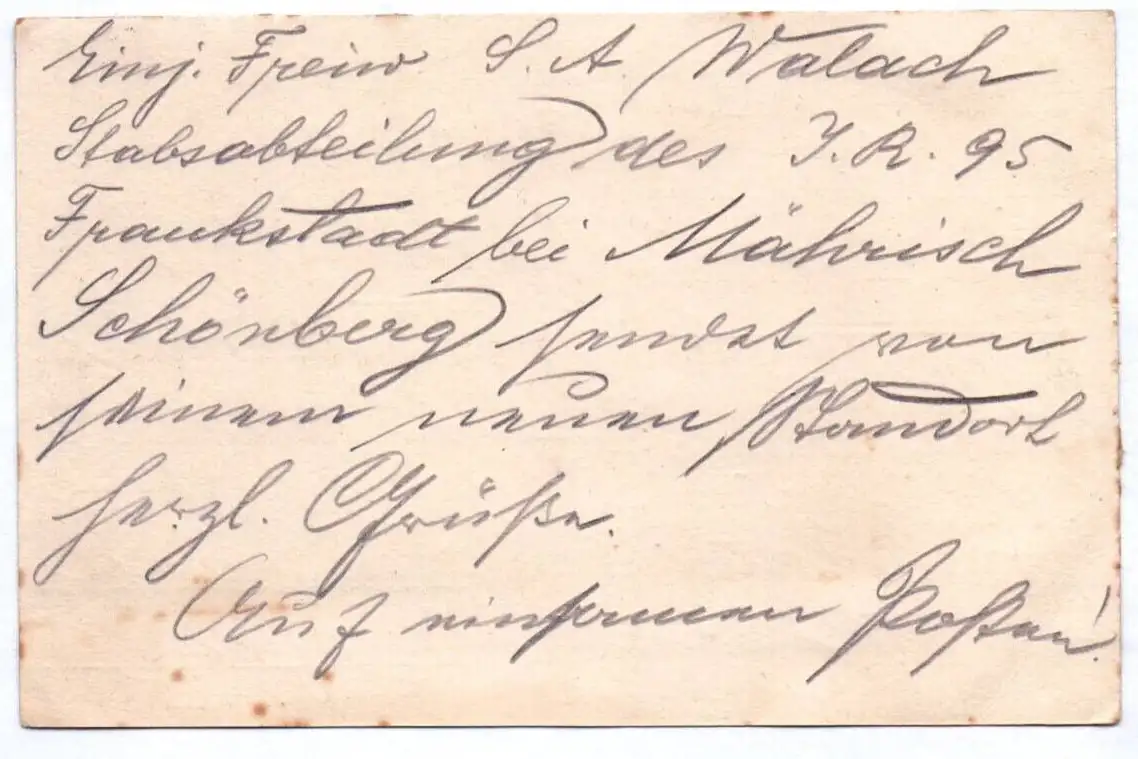 Einj. Freiw. S. A. Walach
Stabsabteilung des I. R. 95
Frankstadt bei Mährisch
Schönberg sendet von
seinem neuen Standort
herzl. Grüße.
Auf einsamen Posten!